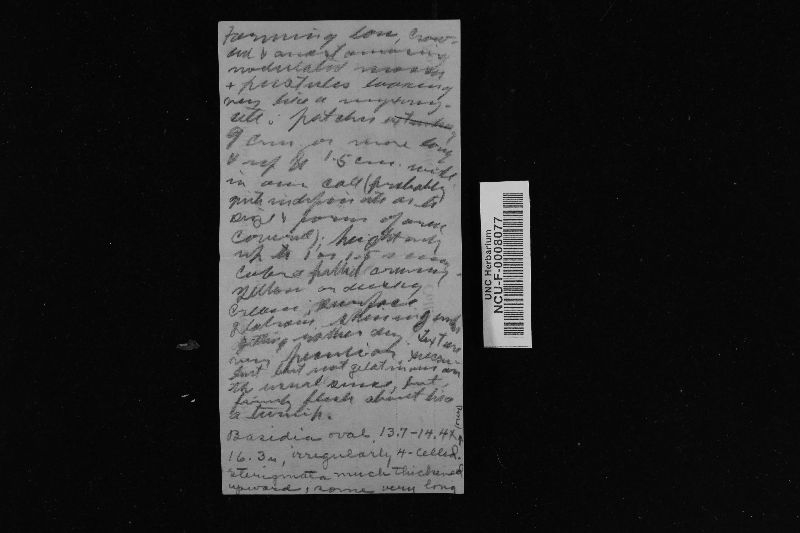 Forming low, crow-
ded & anastomosing
nodulated masses
+ pustules looking
very like a myxomy-
cete; patches
9 cm or more long
& up to 1.5 cm. wide
in our coll (probably
quite indefinite as to
size & form of area
covered); height only
up to 1 or 1.5
color a pallid creamy
yellow or dusky
cream; surface
glabrous, shining
getting rather dry. Texture
very peculiar,
but not gelatinous in
the usual sense, but
firmly fleshy about like
a turnip.
Basidia oval, 13.7-14.4 x
16.3u, irregularly 4-celled.
Sterigmata much thickened
upward, some very long
UNC Herbarium
NCU-F-0008077